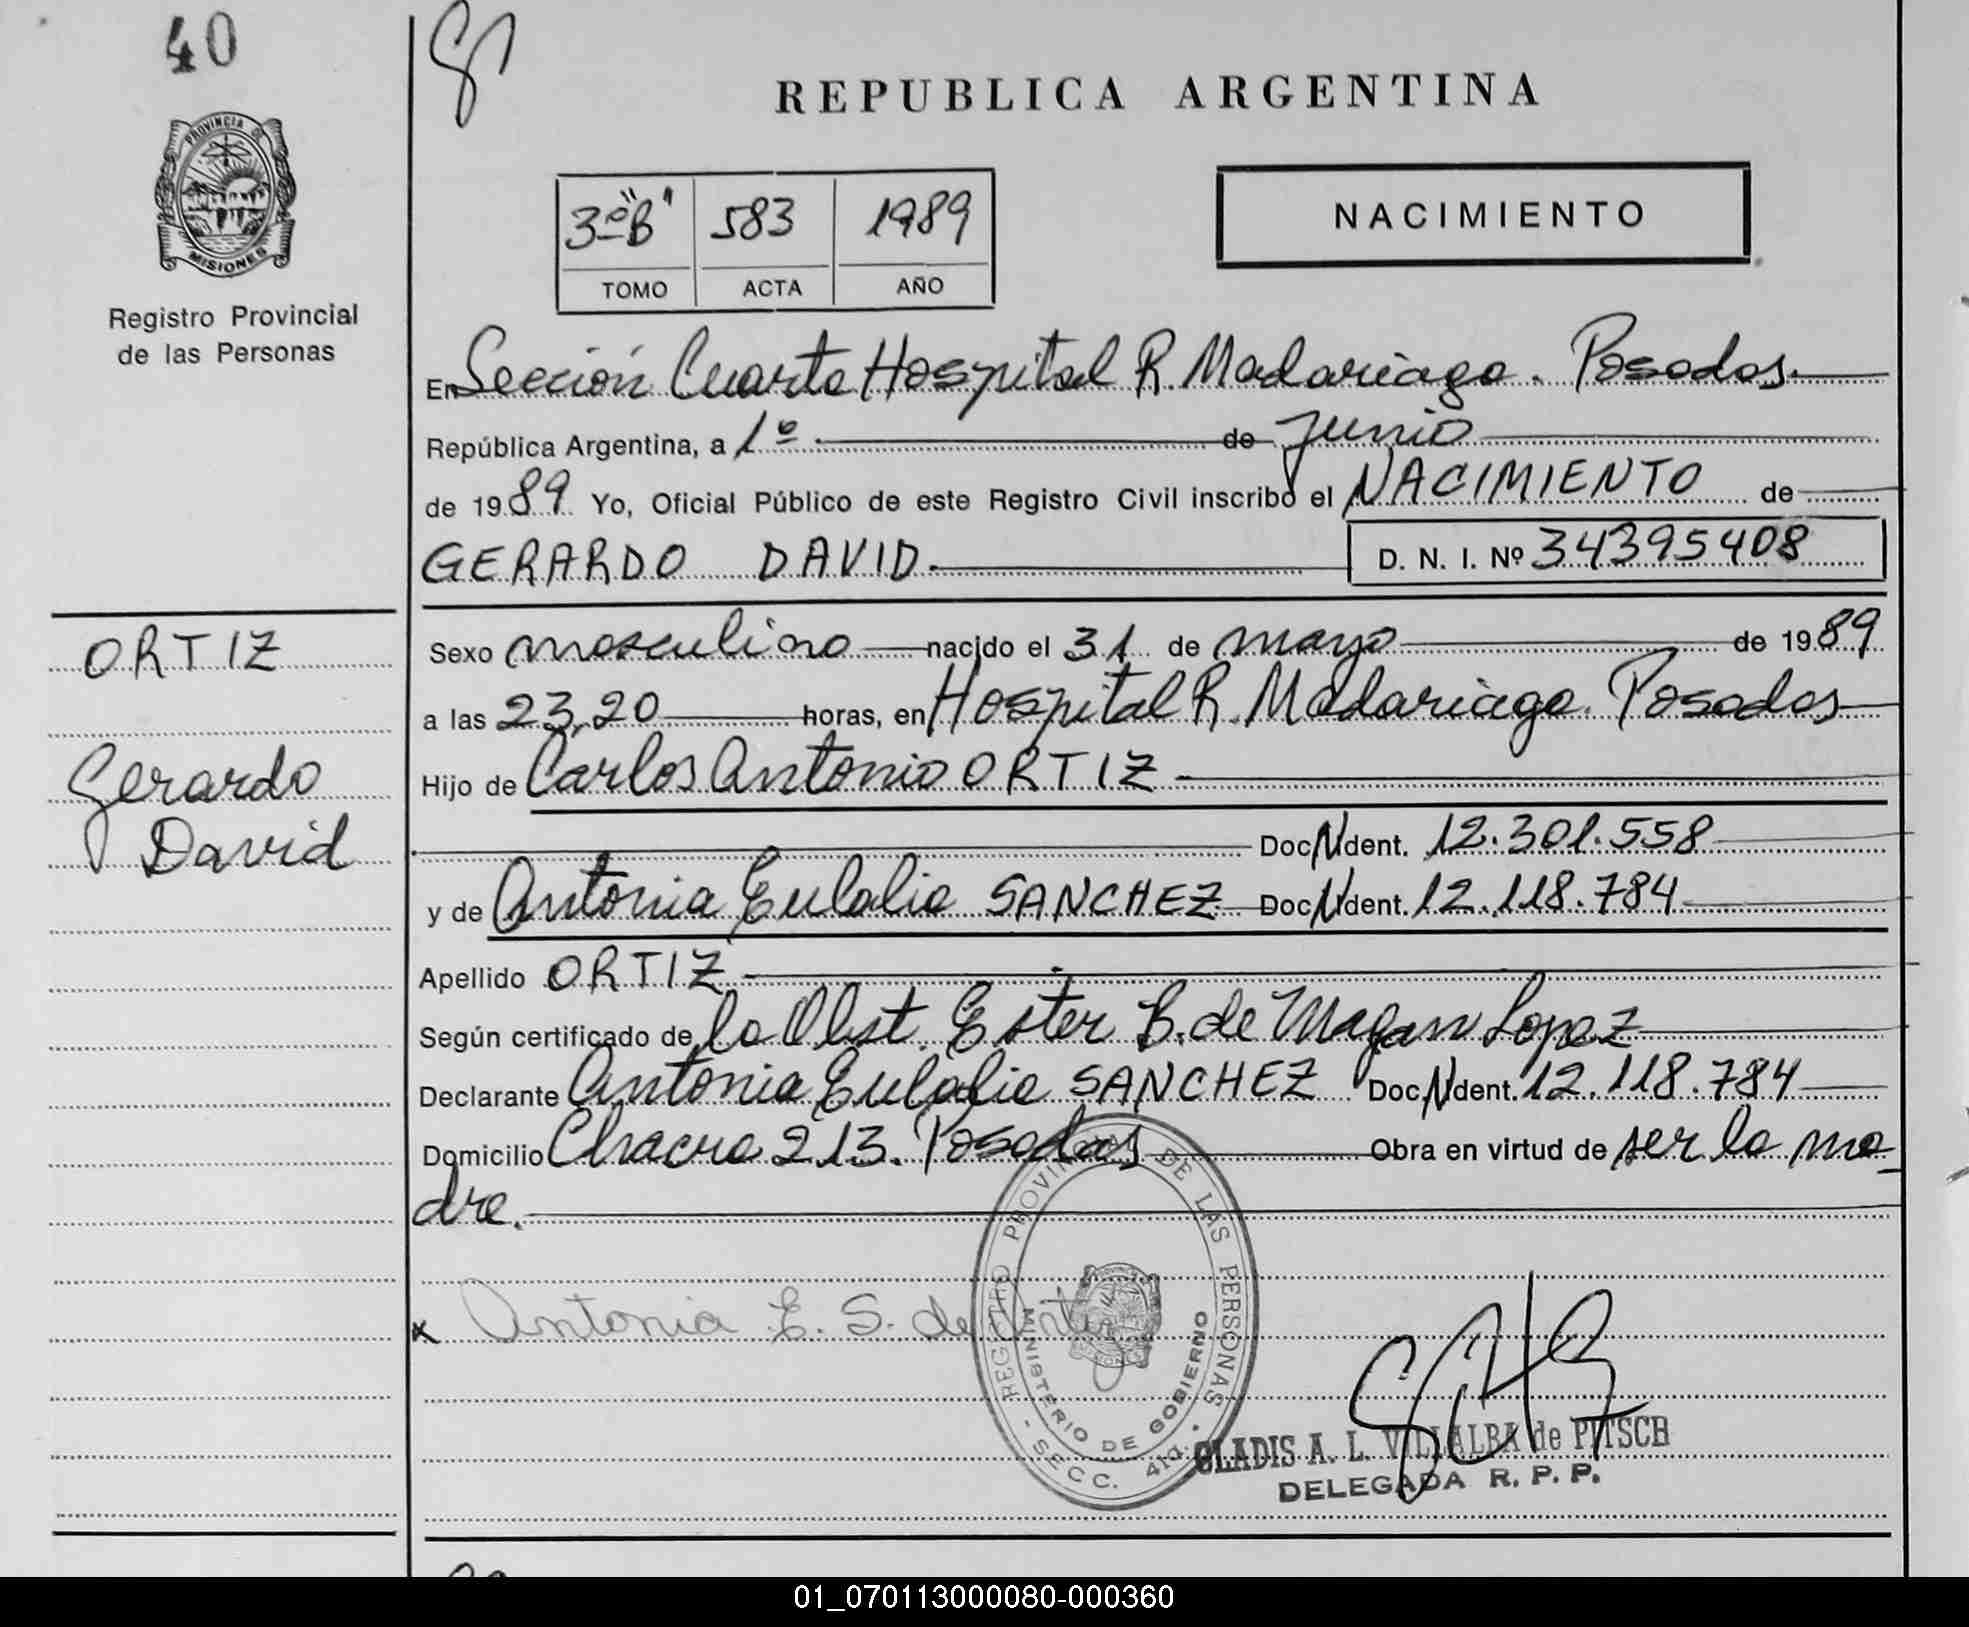 40
REPUBLICA ARGENTINA
PROVINCIA DE
MISIONES
Registro Provincial
de las Personas
3º "B" 583 1989
TOMO ACTA AÑO
NACIMIENTO
En Sección Cuarta Hospital R. Madariaga. Posadas.
República Argentina, a 1º de Junio
de 1989 Yo, Oficial Público de este Registro Civil inscribo el NACIMIENTO de
GERARDO DAVID. D. N. I. Nº 34395408
ORTIZ
Gerardo
David
Sexo masculino nacido el 31 de mayo de 1989
a las 23,20 horas, en Hospital R. Madariaga. Posadas
Hijo de Carlos Antonio ORTIZ
Doc. N Ident. 12.301.558
y de Antonia Eulalia SANCHEZ Doc. N Ident. 12.118.784
Apellido ORTIZ
Según certificado de la Obst. Ester B. de Magan Lopez
Declarante Antonia Eulalia SANCHEZ Doc. N Ident. 12.118.784
Domicilio Chacra 213. Posadas Obra en virtud de ser la ma-
dre.
x Antonia E. S. de Ortiz
REGISTRO PROVINCIAL DE LAS PERSONAS
MINISTERIO DE GOBIERNO
- SECC. 4ta. -
GLADIS A. L. VILLALBA de PITSCH
DELEGADA R. P. P.
01_070113000080-000360